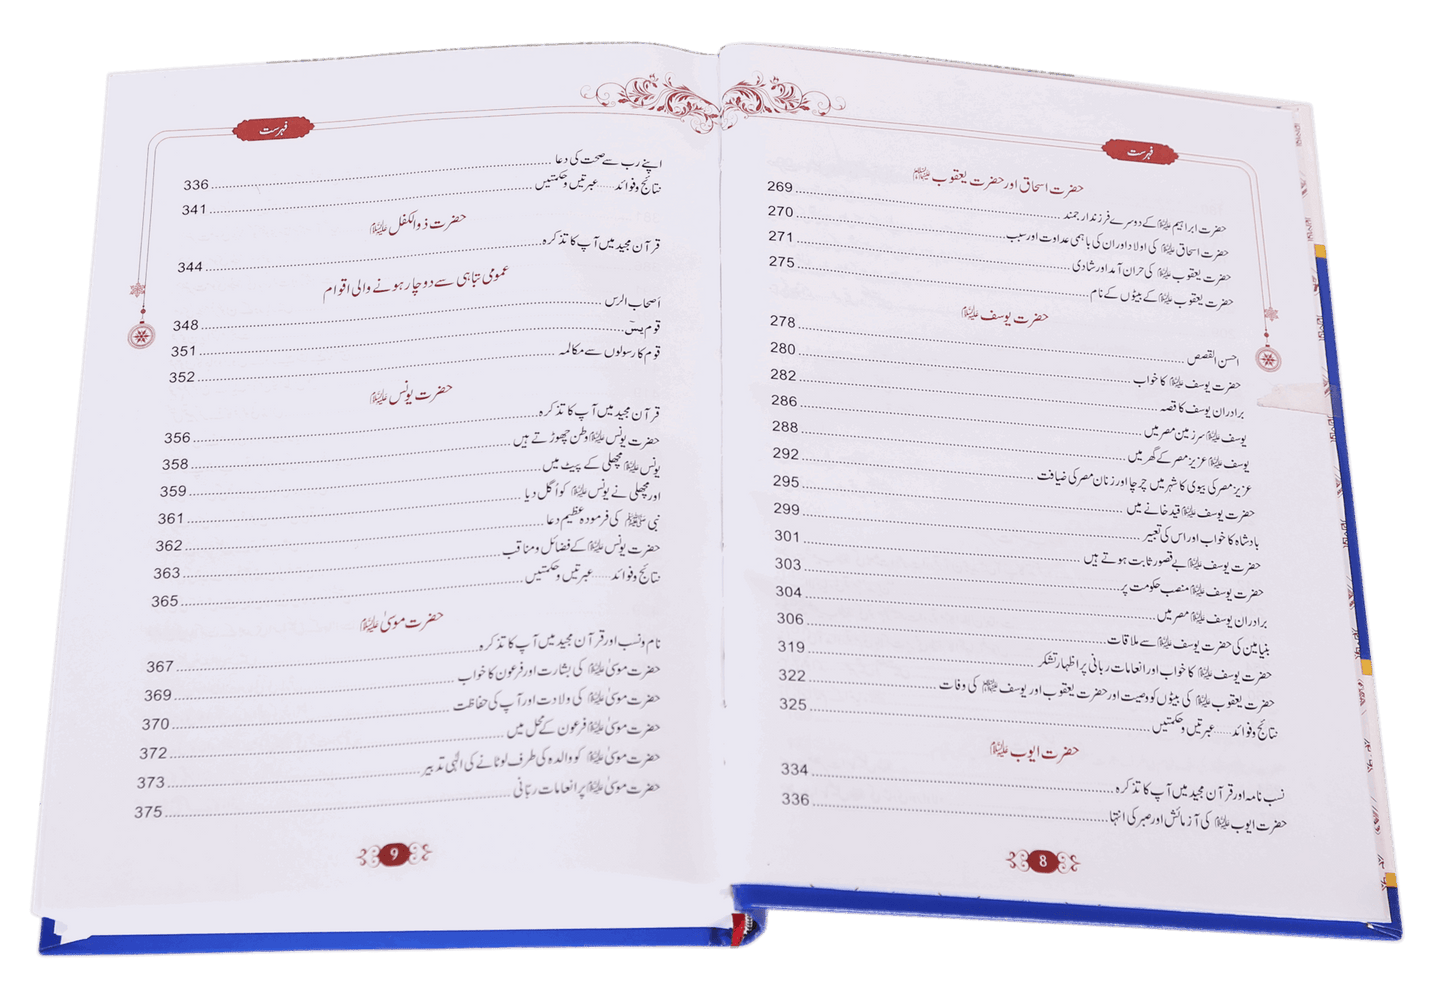 فہرست
حضرت اسحاق اور حضرت یعقوب علیہما السلام
حضرت ابراہیم علیہ السلام کے دوسرے فرزند ارجمند 269
حضرت اسحاق علیہ السلام کی اولاد اور ان کی باہمی عداوت اور سبب 270
حضرت یعقوب علیہ السلام کی حران آمد اور شادی 271
حضرت یعقوب علیہ السلام کے بیٹوں کے نام 275
حضرت یوسف علیہ السلام
احسن القصص 278
حضرت یوسف علیہ السلام کا خواب 280
برادران یوسف کا قصہ 282
یوسف علیہ السلام سرزمین مصر میں 286
یوسف علیہ السلام عزیز مصر کے گھر میں 288
عزیز مصر کی بیوی کا شہر میں چرچا اور زنان مصر کی ضیافت 292
حضرت یوسف علیہ السلام قید خانے میں 295
بادشاہ کا خواب اور اس کی تعبیر 299
حضرت یوسف علیہ السلام بے قصور ثابت ہوتے ہیں 301
حضرت یوسف علیہ السلام منصب حکومت پر 303
برادران یوسف علیہ السلام مصر میں 304
بنیامین کی حضرت یوسف علیہ السلام سے ملاقات 306
حضرت یوسف علیہ السلام کا خواب اور انعامات ربانی پر اظہار تشکر 319
حضرت یعقوب علیہ السلام کی بیٹوں کو وصیت اور حضرت یعقوب اور یوسف علیہما السلام کی وفات 322
نتائج و فوائد ...... عبرتیں و حکمتیں 325
حضرت ایوب علیہ السلام
نسب نامہ اور قرآن مجید میں آپ کا تذکرہ 334
حضرت ایوب علیہ السلام کی آزمائش اور صبر کی انتہا 336
8
فہرست
اپنے رب سے صحت کی دعا 336
نتائج و فوائد ...... عبرتیں و حکمتیں 341
حضرت ذوالکفل علیہ السلام
قرآن مجید میں آپ کا تذکرہ 344
عمومی تباہی سے دوچار ہونے والی اقوام
اصحاب الرس 348
قوم یسٓ 351
قوم کا رسولوں سے مکالمہ 352
حضرت یونس علیہ السلام
قرآن مجید میں آپ کا تذکرہ 356
حضرت یونس علیہ السلام وطن چھوڑتے ہیں 358
یونس علیہ السلام مچھلی کے پیٹ میں 359
اور مچھلی نے یونس علیہ السلام کو اُگل دیا 361
نبی ﷺ کی فرمودہ عظیم دعا 362
حضرت یونس علیہ السلام کے فضائل و مناقب 363
نتائج و فوائد ...... عبرتیں و حکمتیں 365
حضرت موسیٰ علیہ السلام
نام و نسب اور قرآن مجید میں آپ کا تذکرہ 367
حضرت موسیٰ علیہ السلام کی بشارت اور فرعون کا خواب 369
حضرت موسیٰ علیہ السلام کی ولادت اور آپ کی حفاظت 370
حضرت موسیٰ علیہ السلام فرعون کے محل میں 372
حضرت موسیٰ علیہ السلام کو والدہ کی طرف لوٹانے کی الٰہی تدبیر 373
حضرت موسیٰ علیہ السلام پر انعامات ربانی 375
9